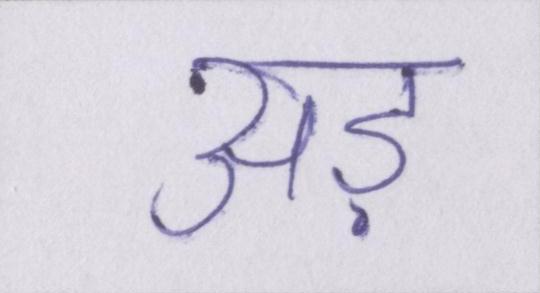 अड़